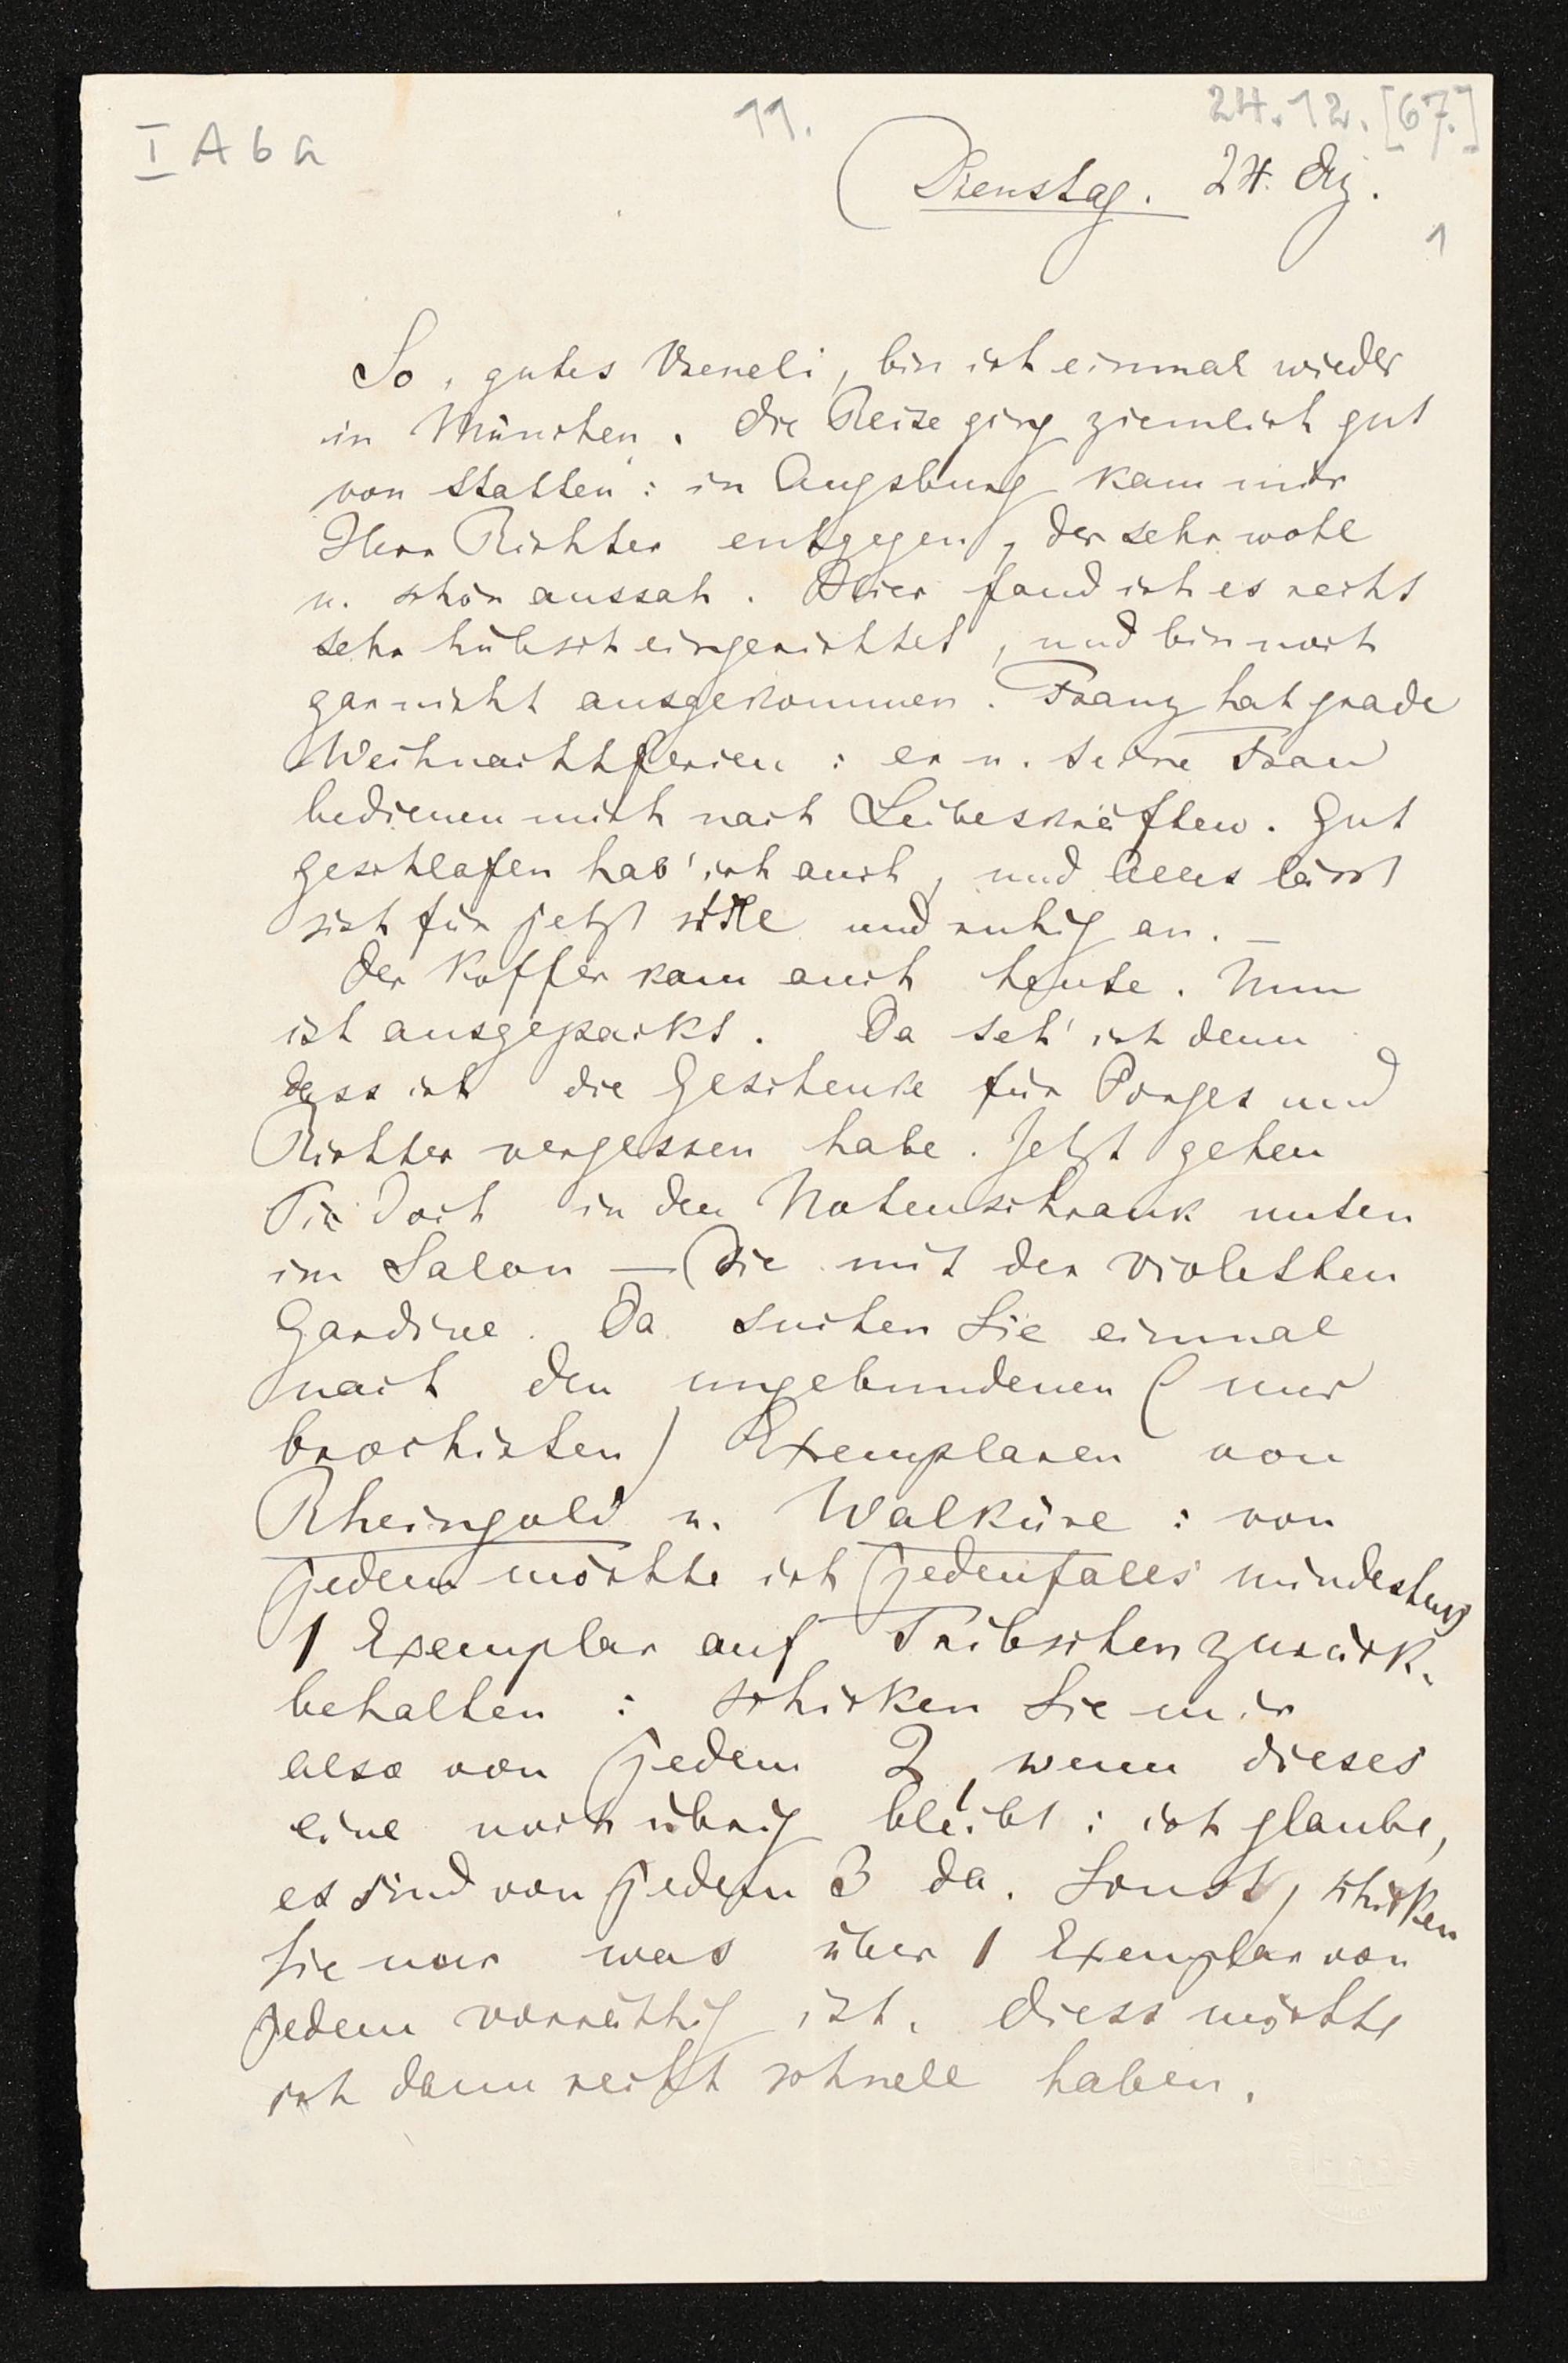 I A b a
11.
24.12.[67.]
Dienstag. 24. Dz.
1
So, gutes Vreneli, bin ich einmal wieder
in München. Die Reise ging ziemlich gut
von Statten: in Augsburg kam mir
Herr Richter entgegen, der sehr wohl
u. schön aussah. Hier fand ich es recht
sehr hübsch eingerichtet, und bin noch
gar nicht ausgekommen. Franz hat grade
Weihnachtsferien: er u. seine Frau
bedienen mich nach Leibeskräften. Gut
geschlafen hab' ich auch, und Alles lässt
sich für jetzt still und ruhig an. —
Der Koffer kam auch heute. Nun
ist ausgepackt. Da seh' ich denn
dass ich die Geschenke für Porges und
Richter vergessen habe. Jetzt gehen
Sie doch in den Notenschrank unten
im Salon — die mit der violetten
Gardine. Da suchen Sie einmal
nach den ungebundenen (nur
brochirten) Exemplaren von
Rheingold u. Walküre: von
jedem möchte ich jedenfalls mindestens
1 Exemplar auf Tribschen zurück-
behalten: schicken Sie mir
also von jedem 2, wenn dieses
eine noch übrig bleibt: ich glaube,
es sind von jedem 3 da. Sonst, schicken
Sie nur was über 1 Exemplar von
jedem vorräthig ist. Diess möchte
ich dann recht schnell haben.